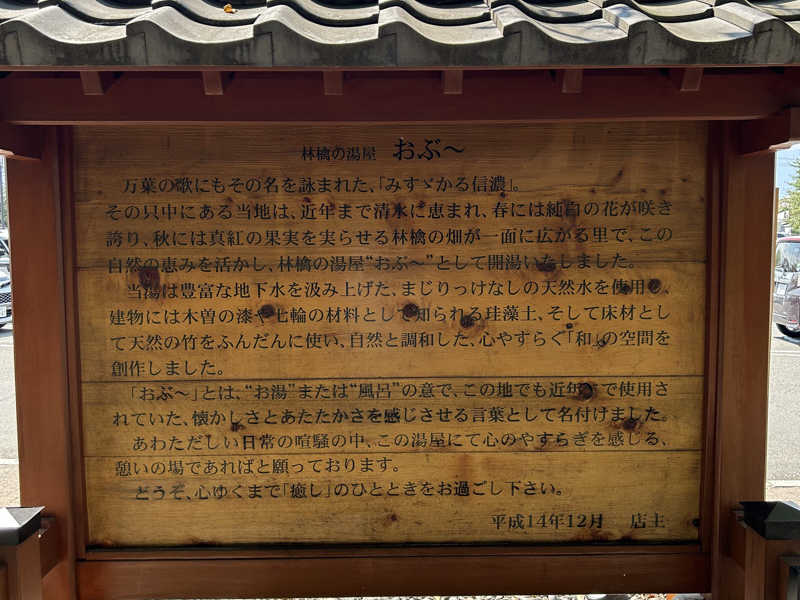 林檎の湯屋 おぶ〜
万葉の歌にもその名を詠まれた、「みすゞかる信濃」。
その只中にある当地は、近年まで清水に恵まれ、春には純白の花が咲き
誇り、秋には真紅の果実を実らせる林檎の畑が一面に広がる里で、この
自然の恵みを活かし、林檎の湯屋“おぶ〜”として開湯いたしました。
当湯は豊富な地下水を汲み上げた、まじりっけなしの天然水を使用し、
建物には木曽の漆や七輪の材料として知られる珪藻土、そして床材とし
て天然の竹をふんだんに使い、自然と調和した、心やすらぐ「和」の空間を
創作しました。
「おぶ〜」とは、“お湯”または“風呂”の意で、この地でも近年まで使用さ
れていた、懐かしさとあたたかさを感じさせる言葉として名付けました。
あわただしい日常の喧騒の中、この湯屋にて心のやすらぎを感じる、
憩いの場であればと願っております。
どうぞ、心ゆくまで「癒し」のひとときをお過ごし下さい。
平成14年12月 店主